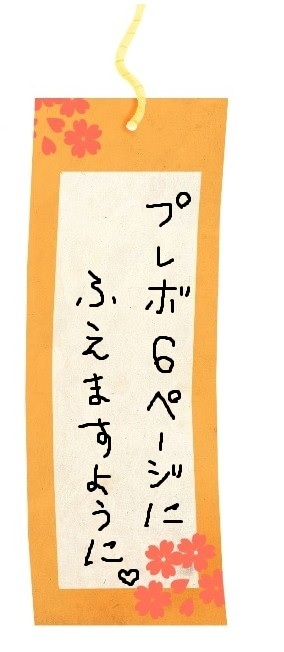 プレボ6ページに
ふえますように♡